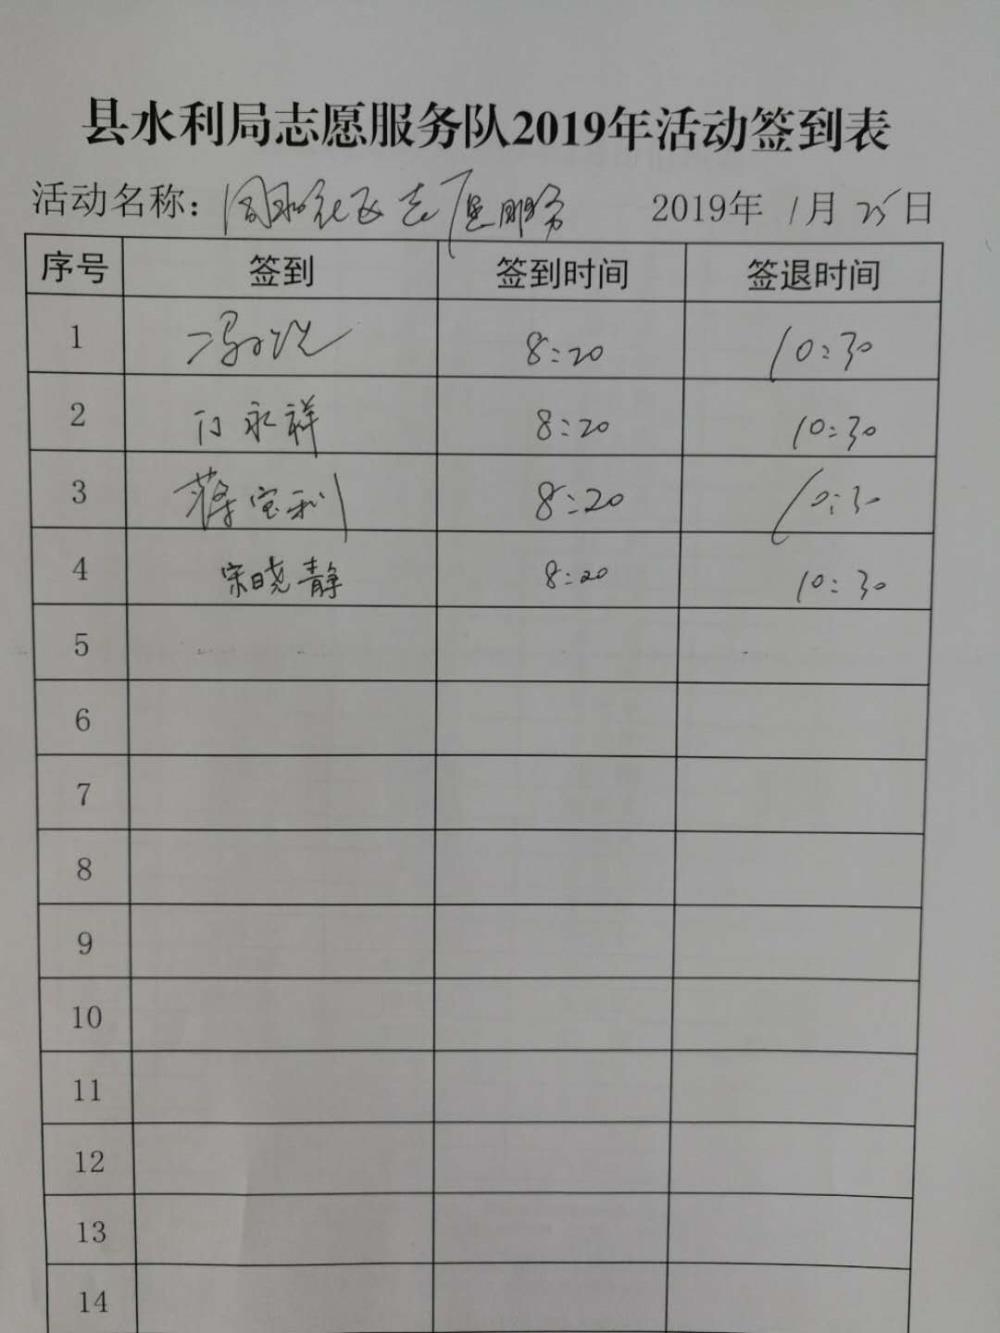 县水利局志愿服务队2019年活动签到表
活动名称： 社区志愿服务 2019年 1月 25日
序号 签到 签到时间 签退时间
1 冯 8:20 10:30
2 门永祥 8:20 10:30
3 蒋宝利 8:20 10:30
4 宋晓静 8:20 10:30
5
6
7
8
9
10
11
12
13
14